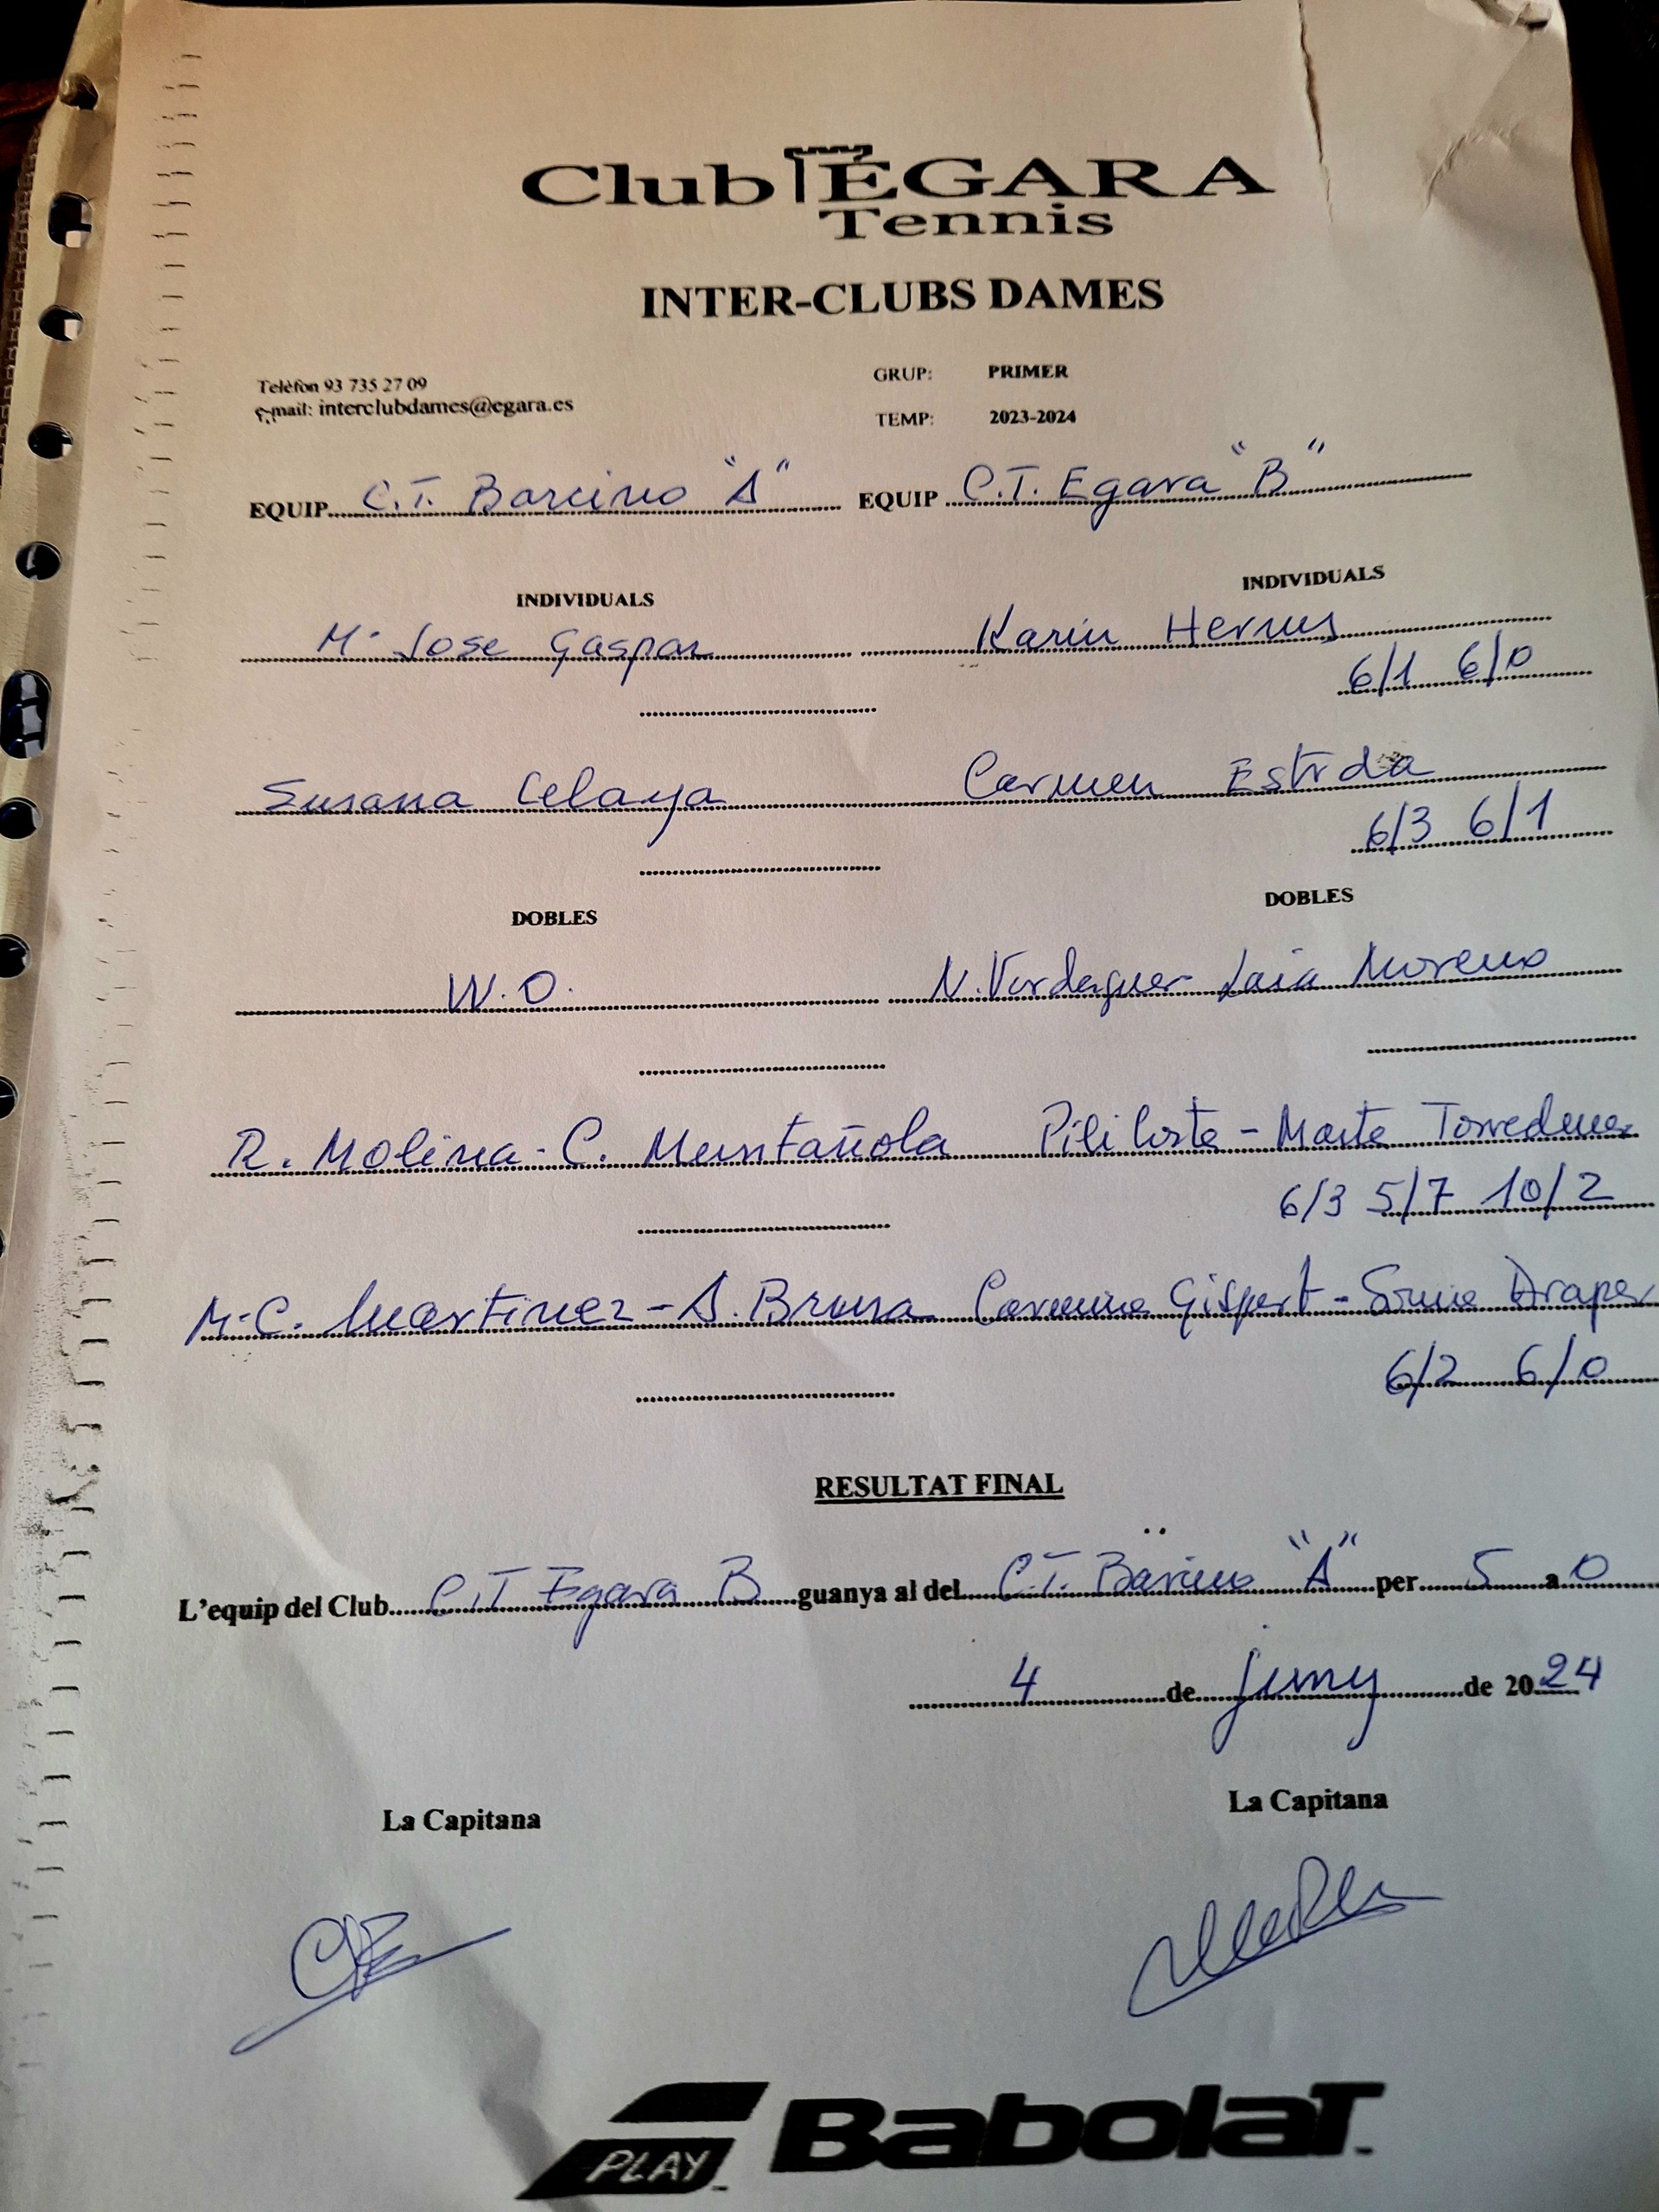 Club ÈGARA
Tennis
INTER-CLUBS DAMES
Telèfon 93 735 27 09
e-mail: interclubdames@egara.es
GRUP: PRIMER
TEMP: 2023-2024
EQUIP C.T. Barcino "A" EQUIP C.T. Egara "B"
INDIVIDUALS INDIVIDUALS
Mª Jose Gaspar Karin
6/1 6/0
Susana Celaya Carmen Estrda
6/3 6/1
DOBLES DOBLES
W.O. N. Verdaguer Laia Moreno
R. Molina - C. Muntañola Pili - Marta Torredemer
6/3 5/7 10/2
M-C. Martinez - A. Bruna Gispert - Draper
6/2 6/0
RESULTAT FINAL
L'equip del Club C.T Egara B guanya al del C.T. Barcino "A" per 5 a 0
4 de juny de 2024
La Capitana La Capitana
PLAY BABOLAT